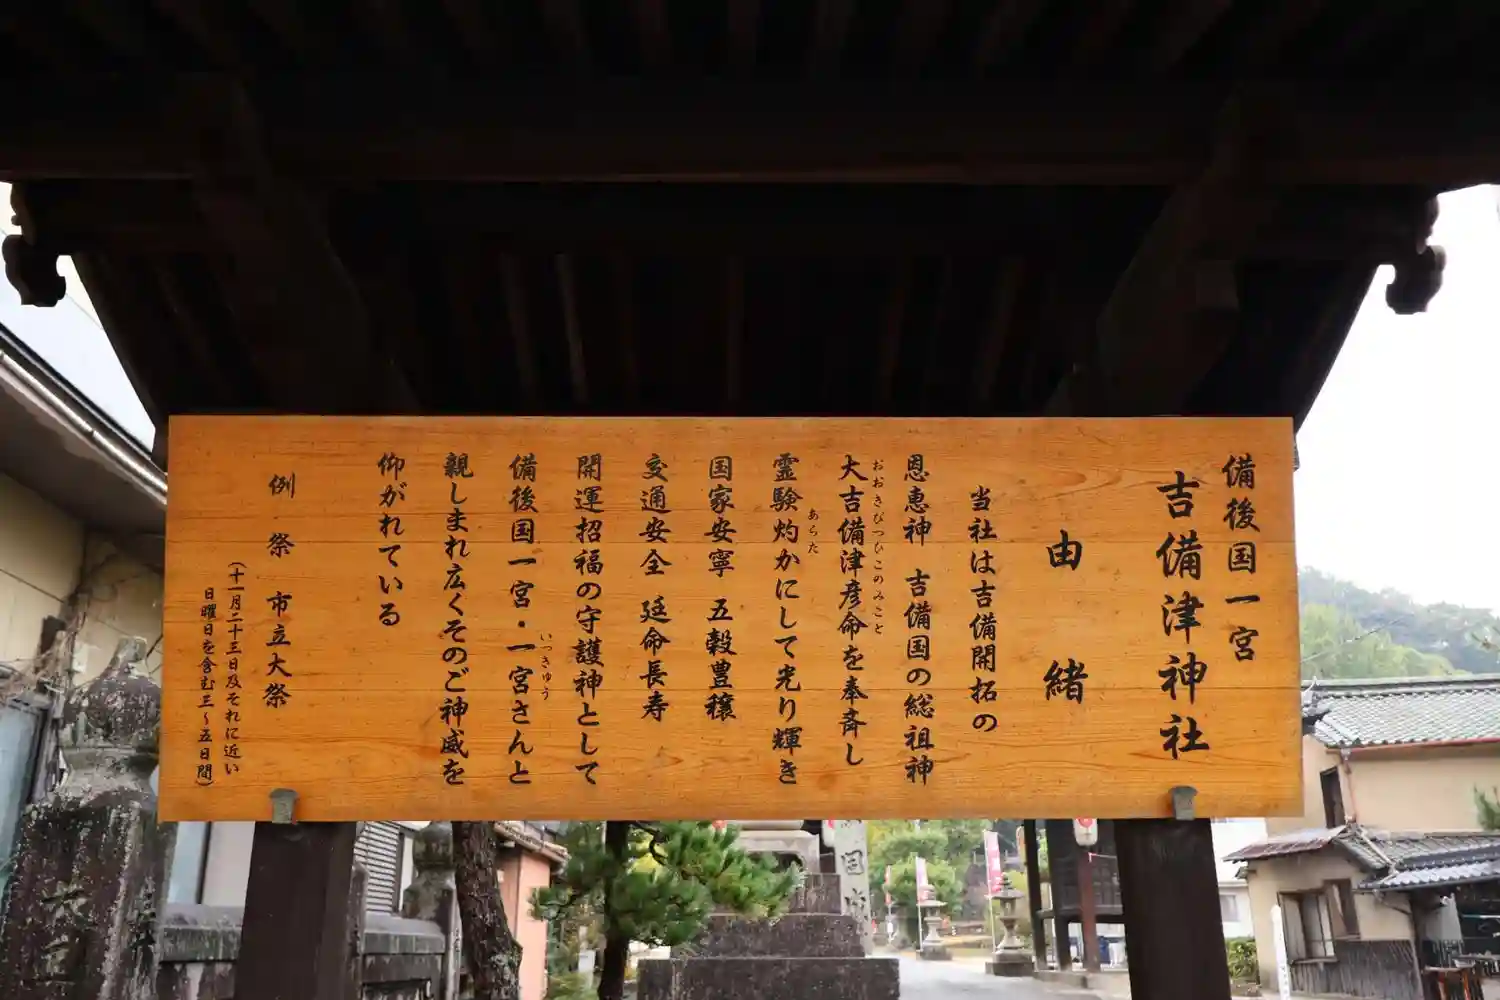 備後国一宮
吉備津神社
由緒
当社は吉備開拓の
恩恵神 吉備国の総祖神
大吉備津彦命を奉斉し
おおきびつひこのみこと
霊験灼かにして光り輝き
あらた
国家安寧 五穀豊穣
交通安全 延命長寿
開運招福の守護神として
備後国一宮・一宮さんと
いっきゅう
親しまれ広くそのご神威を
仰がれている
例祭 市立大祭
(十一月二十三日及それに近い
日曜日を含む三〜五日間)